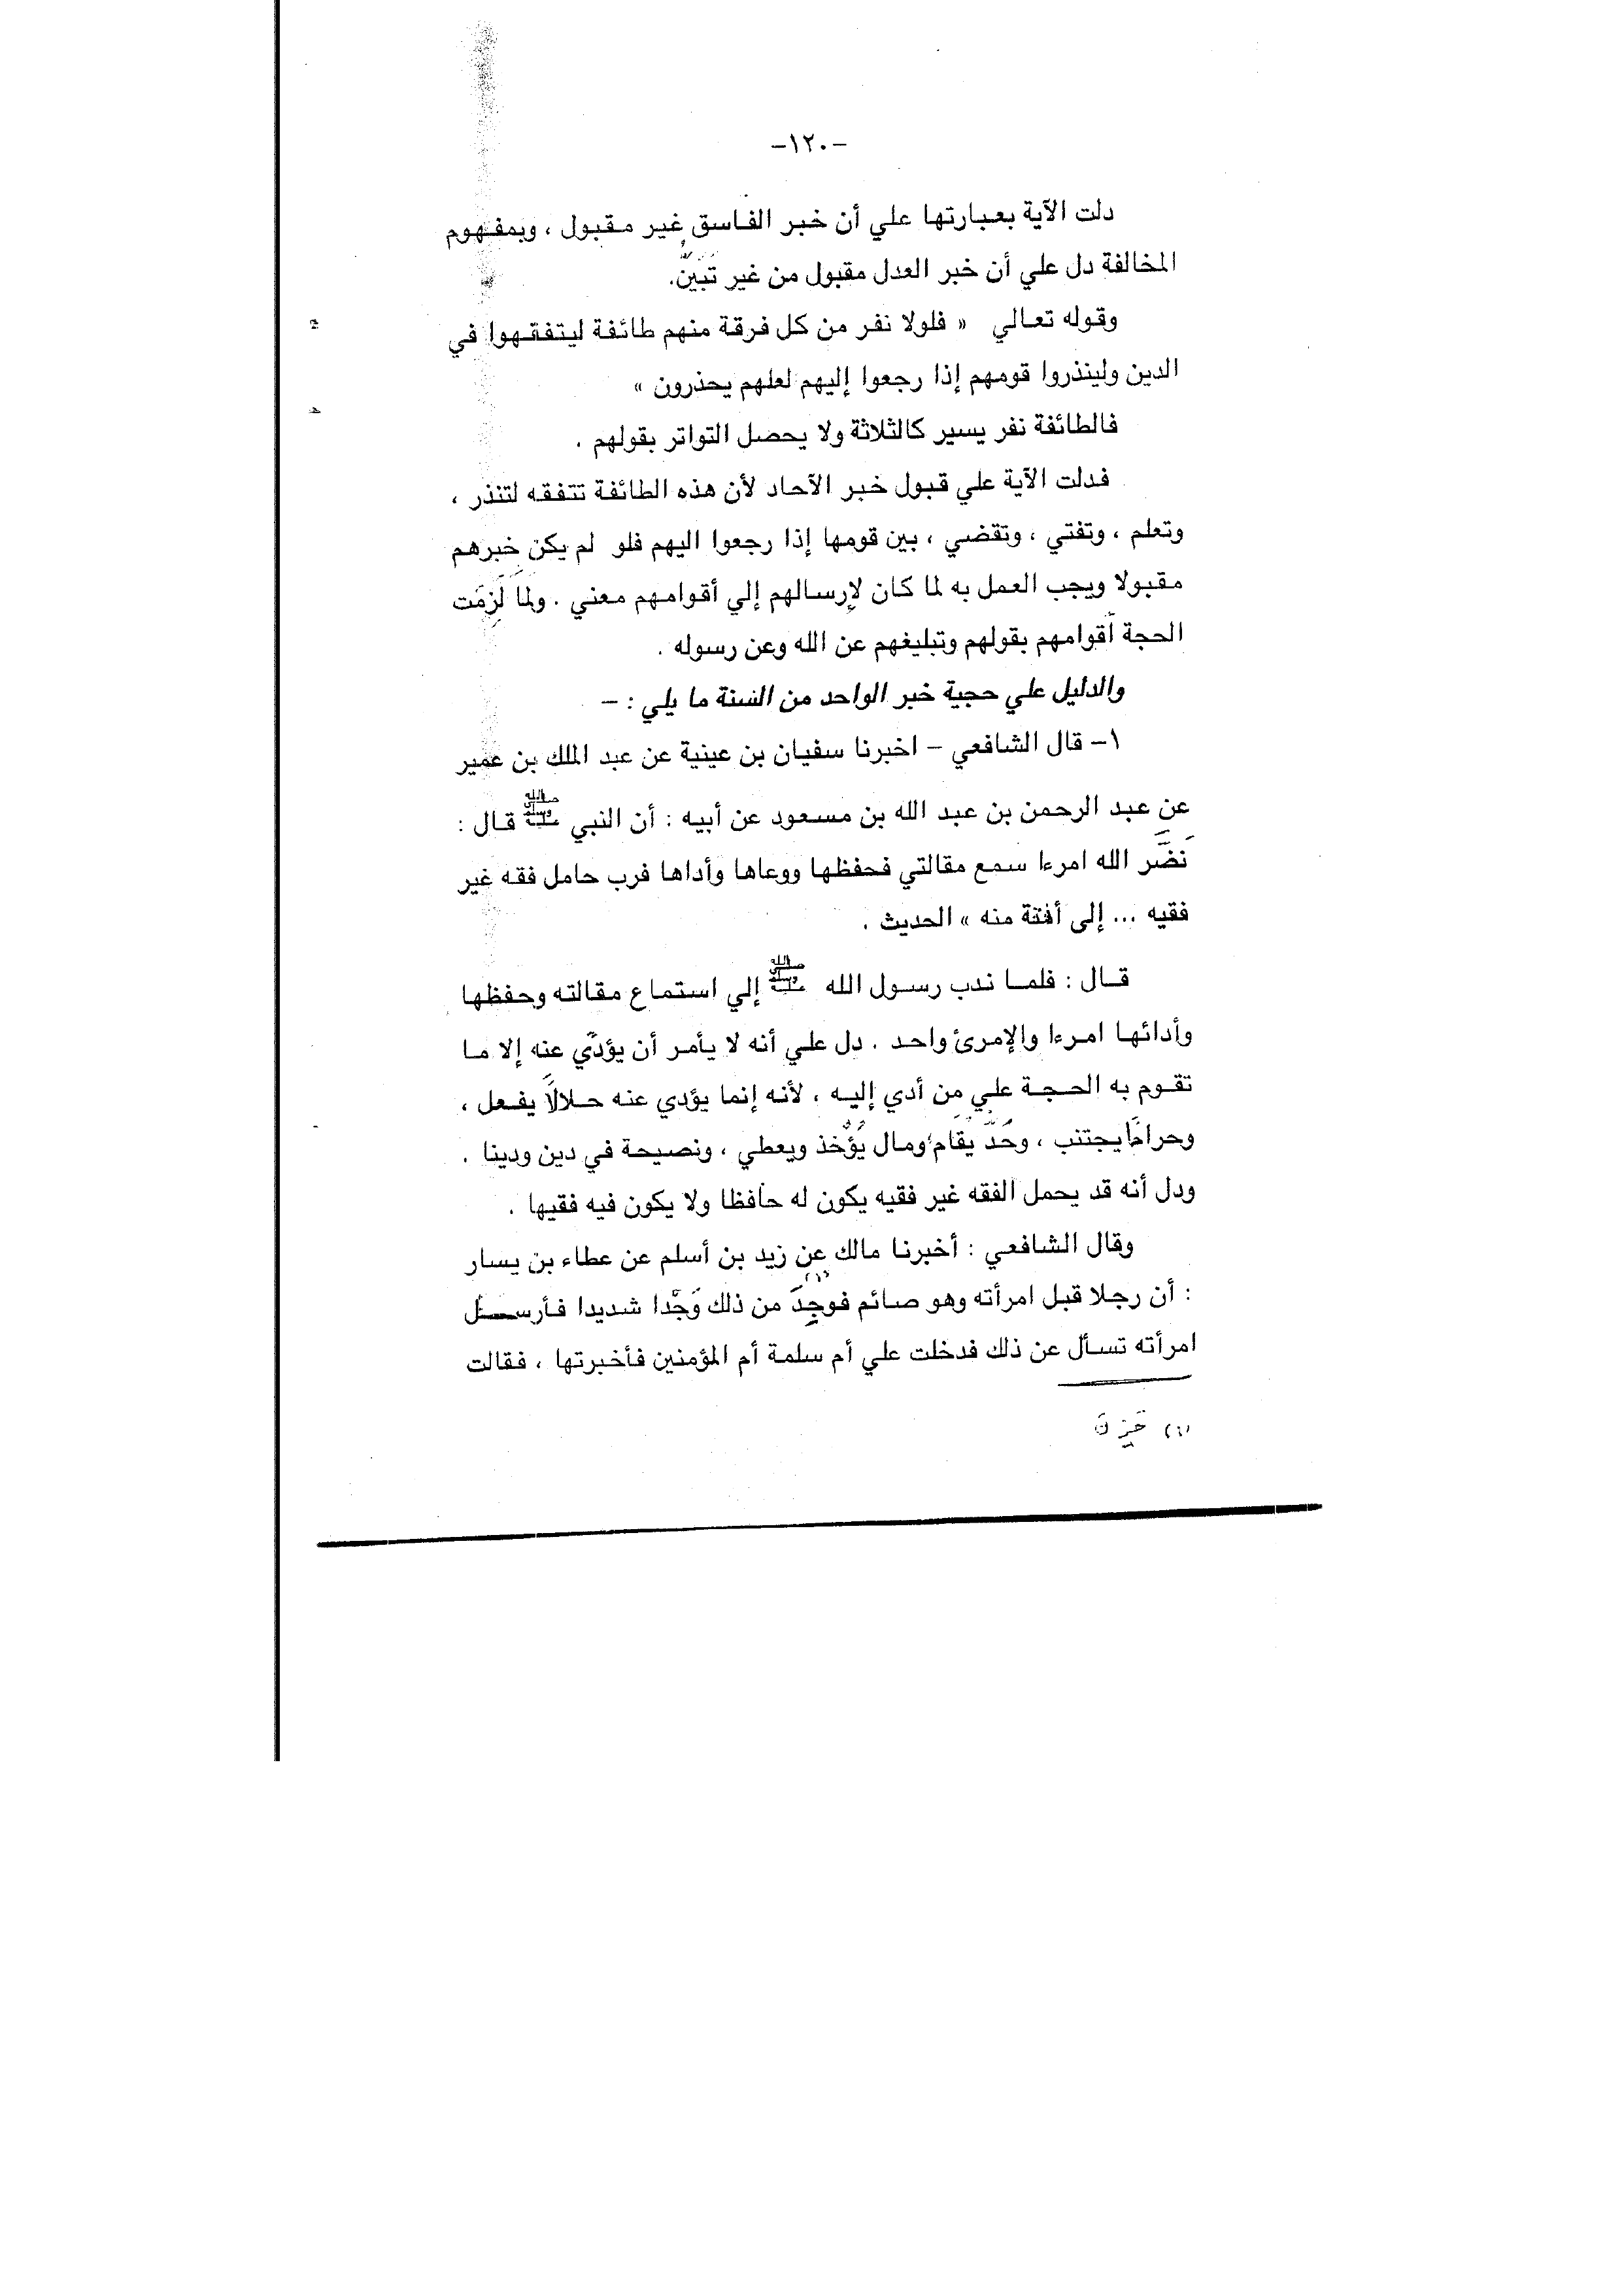 -١٢٠-
دلت الآية بعبارتها علي أن خبر الفاسق غير مقبول ، وبمفهوم
المخالفة دل علي أن خبر العدل مقبول من غير تَبَيُّن.
وقوله تعالي « فلولا نفر من كل فرقة منهم طائفة ليتفقهوا في
الدين ولينذروا قومهم إذا رجعوا إليهم لعلهم يحذرون »
فالطائفة نفر يسير كالثلاثة ولا يحصل التواتر بقولهم .
فدلت الآية علي قبول خبر الآحاد لأن هذه الطائفة تتفقه لتنذر ،
وتعلم ، وتفتي ، وتقضي ، بين قومها إذا رجعوا اليهم فلو لم يكن خبرهم
مقبولا ويجب العمل به لما كان لإرسالهم إلي أقوامهم معني . ولما لَزِمَت
الحجة أقوامهم بقولهم وتبليغهم عن الله وعن رسوله .
والدليل علي حجية خبر الواحد من السنة ما يلي : –
١– قال الشافعي – اخبرنا سفيان بن عينية عن عبد الملك بن عمير
عن عبد الرحمن بن عبد الله بن مسعود عن أبيه : أن النبي ﷺ قال :
نَضَّر الله امرءا سمع مقالتي فحفظها ووعاها وأداها فرب حامل فقه غير
فقيه ... إلى أفتة منه » الحديث .
قال : فلما ندب رسول الله ﷺ إلي استماع مقالته وحفظها
وأدائها امرءا والإمرئ واحد . دل علي أنه لا يأمر أن يؤدّي عنه إلا ما
تقوم به الحجة علي مَن أدي إليه ، لأنه إنما يؤدي عنه حلالاً يفعل ،
وحراماً يجتنب ، وحَدّ يقام ومال يُؤْخذ ويعطي ، ونصيحة في دين ودينا .
ودل أنه قد يحمل الفقه غير فقيه يكون له حافظا ولا يكون فيه فقيها .
وقال الشافعي : أخبرنا مالك عن زيد بن أسلم عن عطاء بن يسار
: أن رجلا قبل امرأته وهو صائم فوجِدَ (١) من ذلك وَجْدا شديدا فأرسل
امرأته تسأل عن ذلك فدخلت علي أم سلمة أم المؤمنين فأخبرتها ، فقالت
(١) حَزِنَ